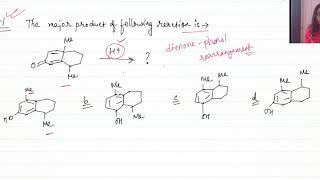 The major product of following reaction is →
Me
O
H+
?
dienone - phenol
rearrangement
Me
Me
HO
Me
b
Me
OH
Me
c
Me
OH
Me
d
Me
HO
Me